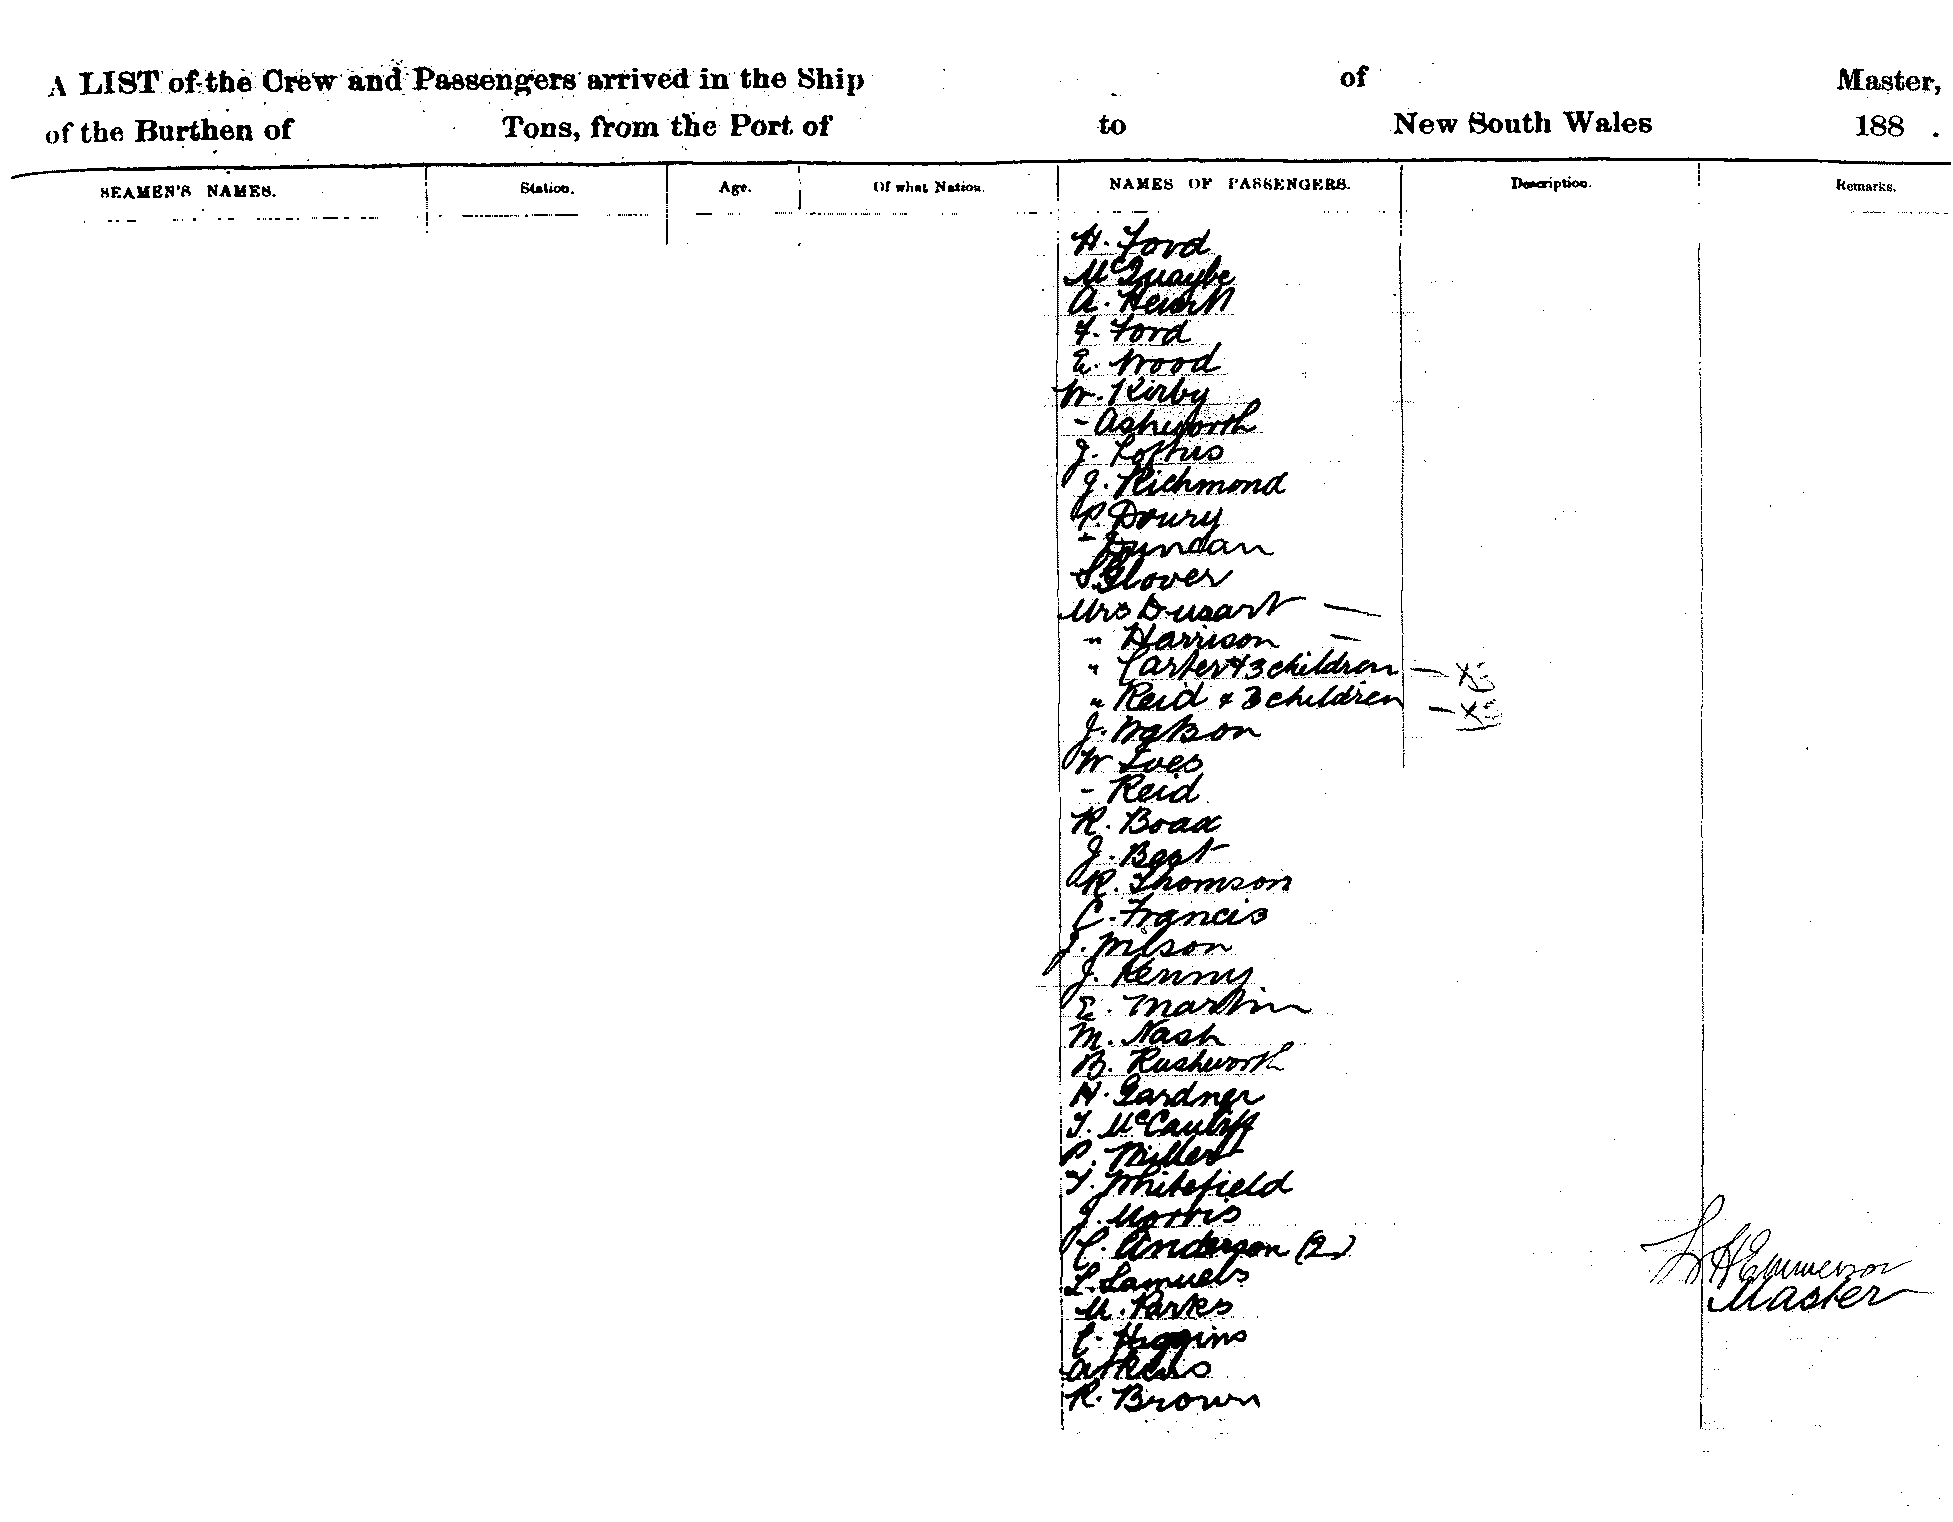 A LIST of the Crew and Passengers arrived in the Ship of Master,
of the Burthen of Tons, from the Port of to New South Wales 188 .
SEAMEN'S NAMES. Station. Age. Of what Nation. NAMES OF PASSENGERS. Description. Remarks.
H. Ford
A.
F. Ford
E. Wood
W. Kirby
- Ashworth
J. Loftus
J. Richmond
P. Doury
- Duncan
S. Glover
Mrs Dusart —
" Harrison —
" Carter & 3 children — X
" Reid & 3 children — X
J. Watson
W Ives
- Reid
R. Boax
J. Best
R. Thomson
C. Francis
J. Wilson
J. Kenny
E. Martin
M. Nash
B. Rushworth
H. Gardner
T. McCauliff
P. Miller
T. Whitefield
J. Morris
C. Anderson (2)
L. Samuels
M. Parks
C. Higgins
Atkins
R. Brown
H Emmerson
Master